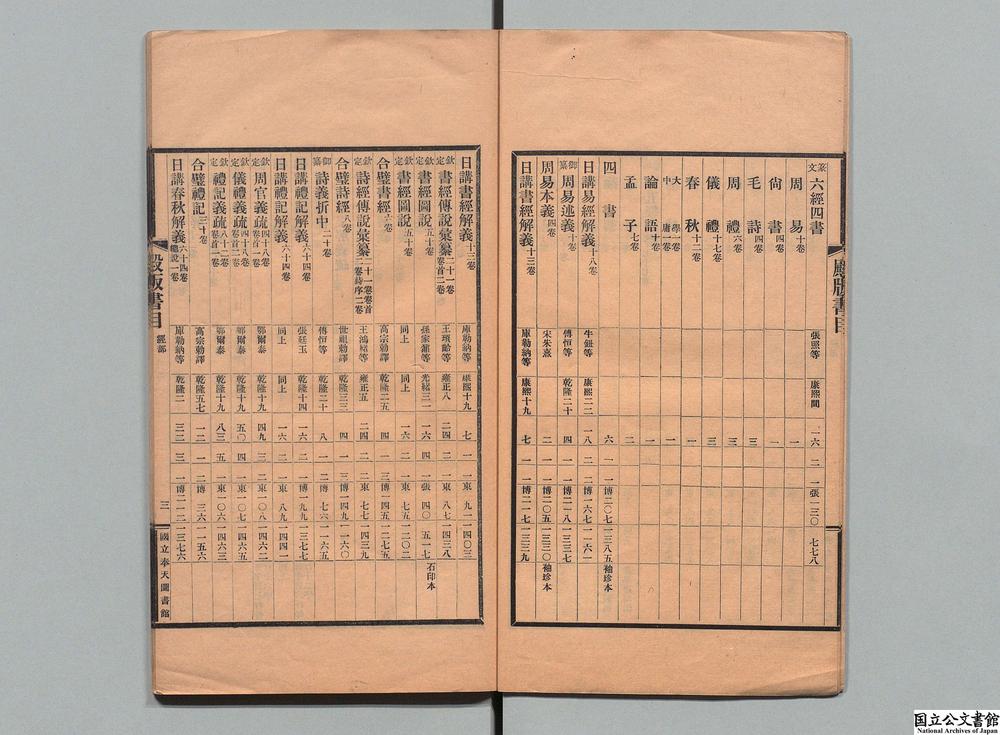 殿版書目
篆文 六經四書 張照等 康熙間 一六 二 一 張一三〇 七七八
周易 十卷 一
尙書 四卷 一
毛詩 四卷 三
周禮 六卷 三
儀禮 十七卷 三
春秋 十二卷 一
大學 一卷 中庸 一卷 一
論語 十卷 一
孟子 七卷 二
四書 六 一 一 博二〇七 一三八五 袖珍本
日講易經解義 十八卷 牛鈕等 康熙二二 一八 二 二 博一六七 一一六一
御纂 周易述義 十卷 傅恒等 乾隆二十 四 一 一 博二一八 一三三七
周易本義 四卷 宋朱熹 二 一 一 博二〇五 一三三〇 袖珍本
日講書經解義 十三卷 庫勒納等 康熙十九 七 一 一 博二一七 一三三九
日講書經解義 十三卷 庫勒納等 康熙十九 七 一 一 東九一 一四〇三
欽定 書經傳說彙纂 二十一卷 卷首二卷 王頊齡等 雍正八 二四 二 一 東八七 一四三八
欽定 書經圖說 五十卷 孫家鼐等 光緖三一 一六 四 一 張四〇 五一七 石印本
欽定 書經圖說 五十卷 同上 同上 一六 二 二 東七五 一二〇二
合璧書經 六卷 高宗勅譯 乾隆二五 四 一 三 博一四五 一二七五
欽定 詩經傳說彙纂 二十一卷 卷首二卷 詩序二卷 王鴻緖等 雍正五 二四 二 二 東七七 一四三九
合璧詩經 八卷 世祖勅譯 乾隆三三 四 一 三 博一四九 一一六〇
御纂 詩義折中 二十卷 傅恒等 乾隆二十 八 一 二 博七六 一一六五
日講禮記解義 六十四卷 張廷玉 乾隆十四 一六 二 一 博一九九 一三七七
日講禮記解義 六十四卷 同上 同上 一六 二 一 東八九 一四四一
欽定 周官義疏 四十八卷 卷首一卷 鄂爾泰 乾隆十九 四九 三 二 東一〇八 一四六二
欽定 儀禮義疏 四十八卷 卷首二卷 鄂爾泰 乾隆十九 五〇 四 一 東一〇七 一四六五
欽定 禮記義疏 八十二卷 卷首一卷 鄂爾泰 乾隆十九 八三 五 一 東一〇六 一四六三
合璧禮記 三十卷 高宗勅譯 乾隆五七 一二 一 二 博三六 一一五六
日講春秋解義 六十四卷 總說一卷 庫勒納等 乾隆二 三二 三 一 博二一二 一三七六
殿版書目 經部 三 國立奉天圖書館
国立公文書館
National Archives of Japan